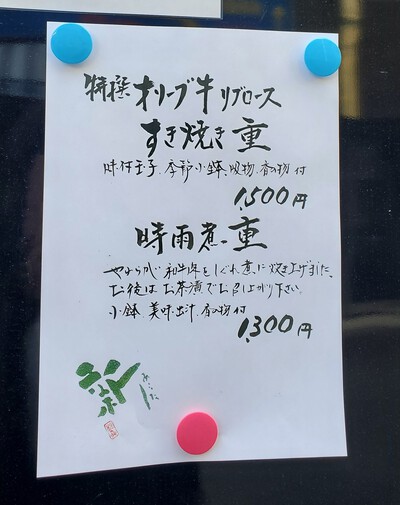 特撰 オリーブ牛リブロース
すき焼き重
味付玉子、季節小鉢、吸物、香の物付
1,500円
時雨煮重
やわらかい和牛をしぐれ煮に炊き上げました。
お後はお茶漬でお召し上がり下さい。
小鉢、美味出汁、香の物付
1,300円
新
あらた